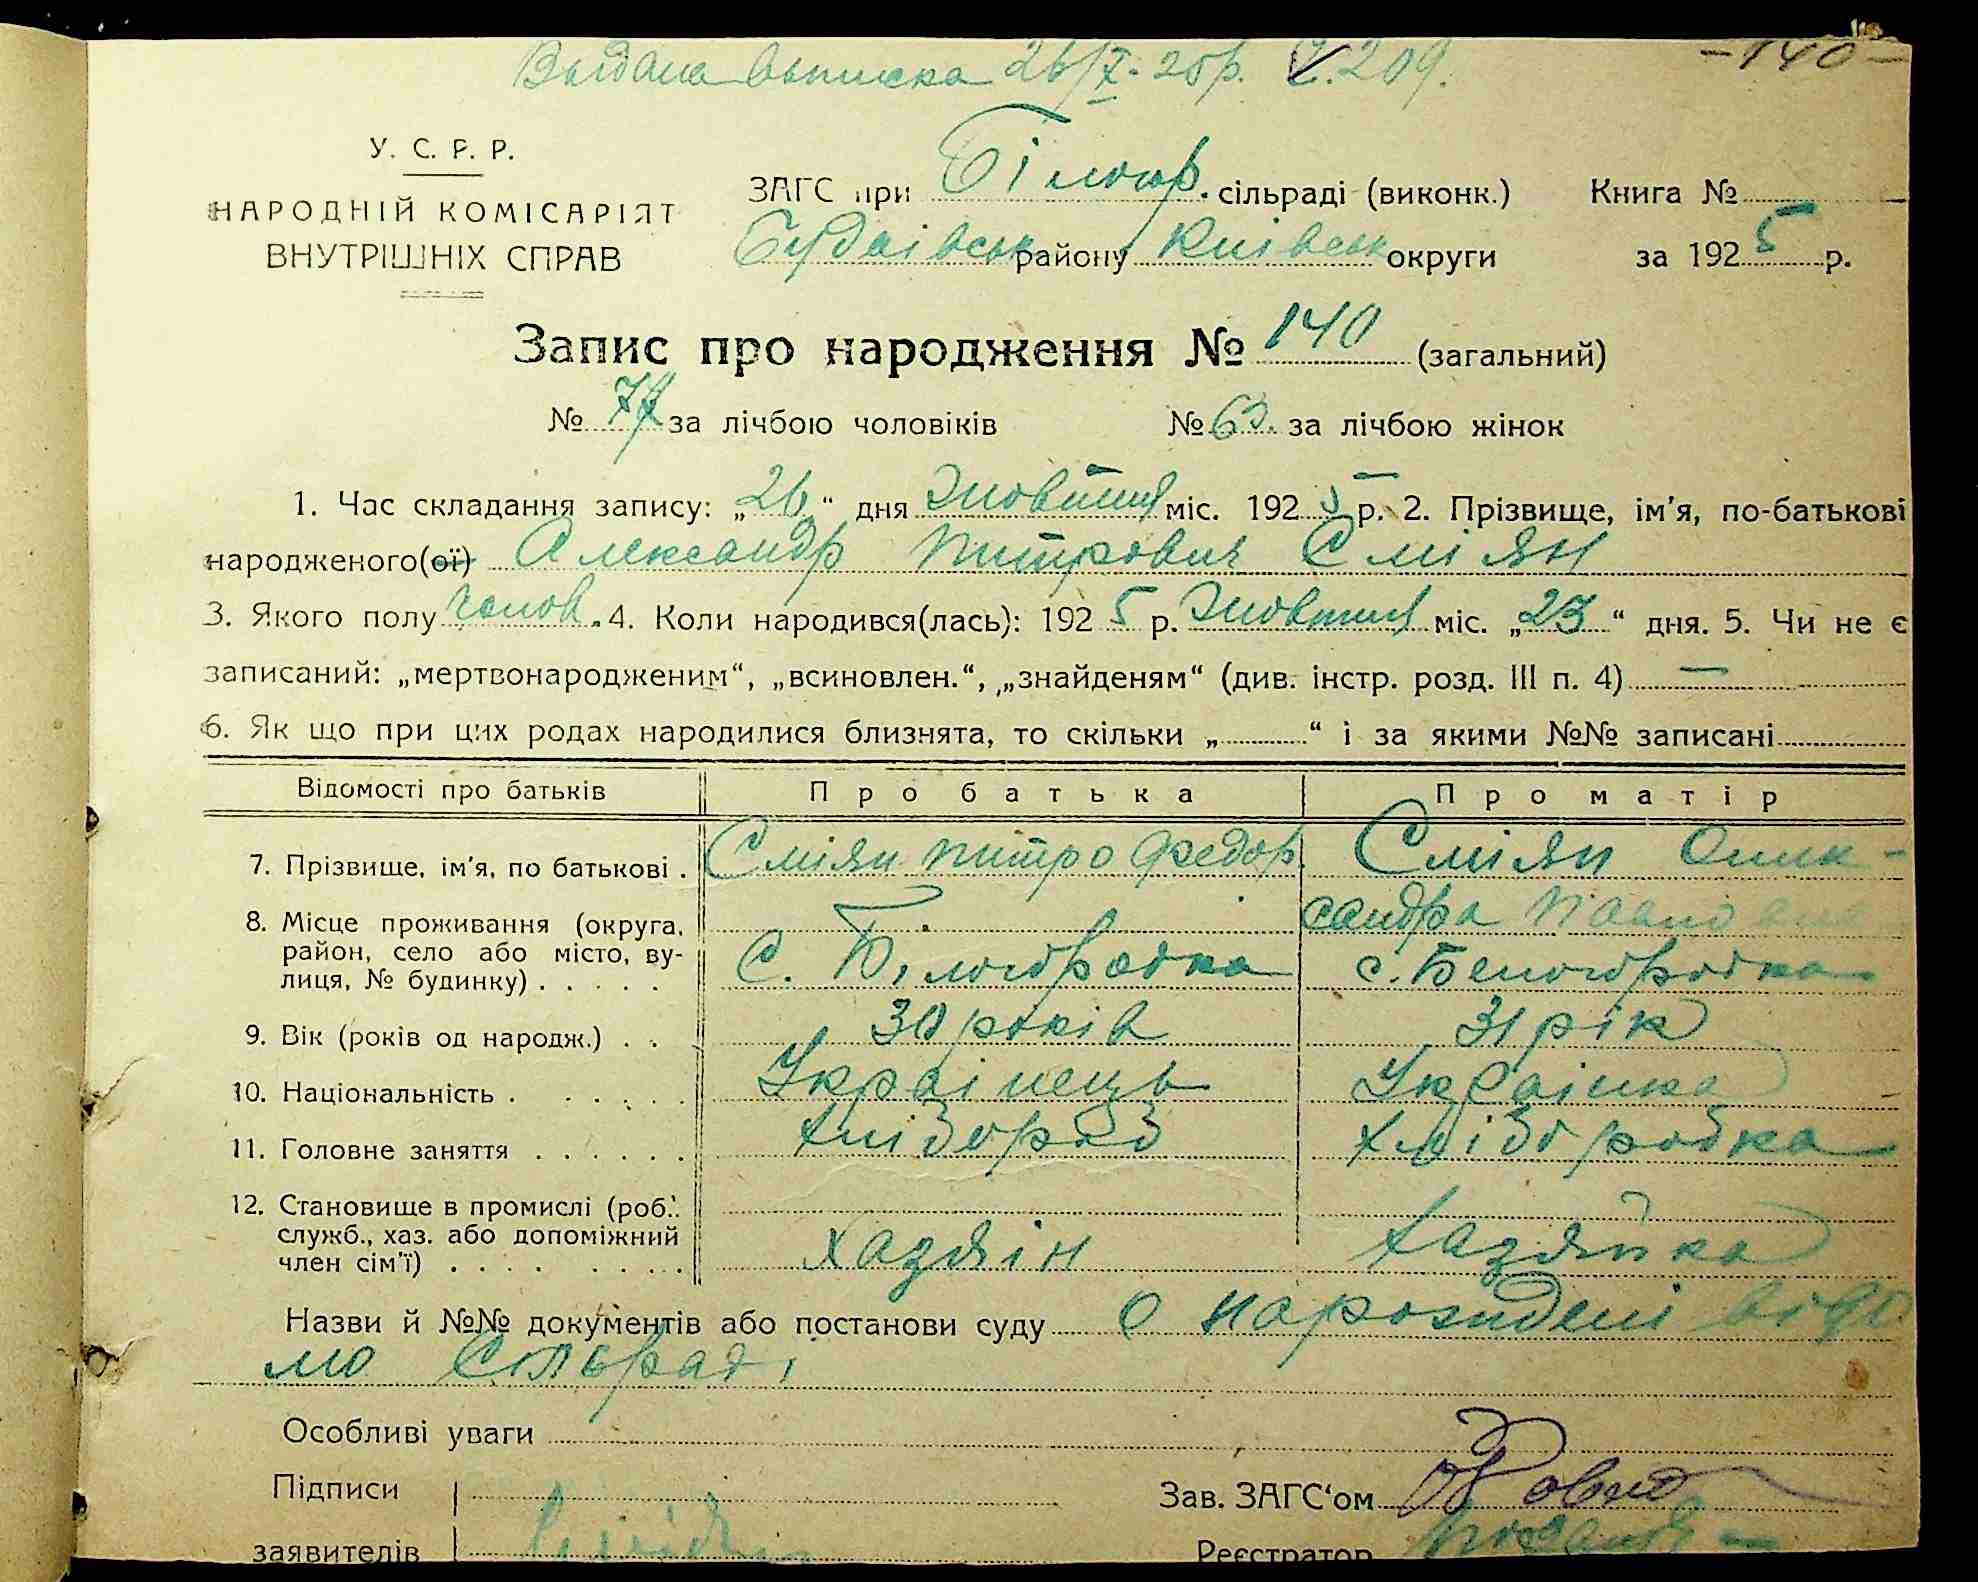 Выдана выписка 26/X-25р. 209.
-140-
У. С. Р. Р.
НАРОДНІЙ КОМІСАРІЯТ
ВНУТРІШНІХ СПРАВ
ЗАГС при Білогор. сільраді (виконк.) Книга №
Будаівськ району Київськ округи за 1925 р.
Запис про народження № 140 (загальний)
№ 77 за лічбою чоловіків № 63. за лічбою жінок
1. Час складання запису: „26“ дня Жовтня міс. 1925 р. 2. Прізвище, ім'я, по-батькові
народженого(ої) Александр Питрович Сміян
3. Якого полу чолов. 4. Коли народився(лась): 1925 р. Жовтня міс. „23“ дня. 5. Чи не є
записаний: „мертвонародженим“, „всиновлен.“, „знайденям“ (див. інстр. розд. III п. 4) —
6. Як що при цих родах народилися близнята, то скільки „ “ і за якими №№ записані
Відомості про батьків Про батька Про матір
7. Прізвище, ім'я, по батькові . Сміян Питро Федор. Сміян Олик-
сандра Павловна
8. Місце проживання (округа,
район, село або місто, ву-
лиця, № будинку) . . . . . с. Білогородка с. Белогородка
9. Вік (років од народж.) . . 30 років 31 рік
10. Національність . . . . . . Українець Українка
11. Головне заняття . . . . . . Хлібороб Хліборобка
12. Становище в промислі (роб.
служб., хаз. або допоміжний
член сім'ї) . . . . . . . . Хазяін Хазяйка
Назви й №№ документів або постанови суду О нарождені відо
мо Сільраді
Особливі уваги
Підписи
Зав. ЗАГС‘ом
заявителів
Реєстратор